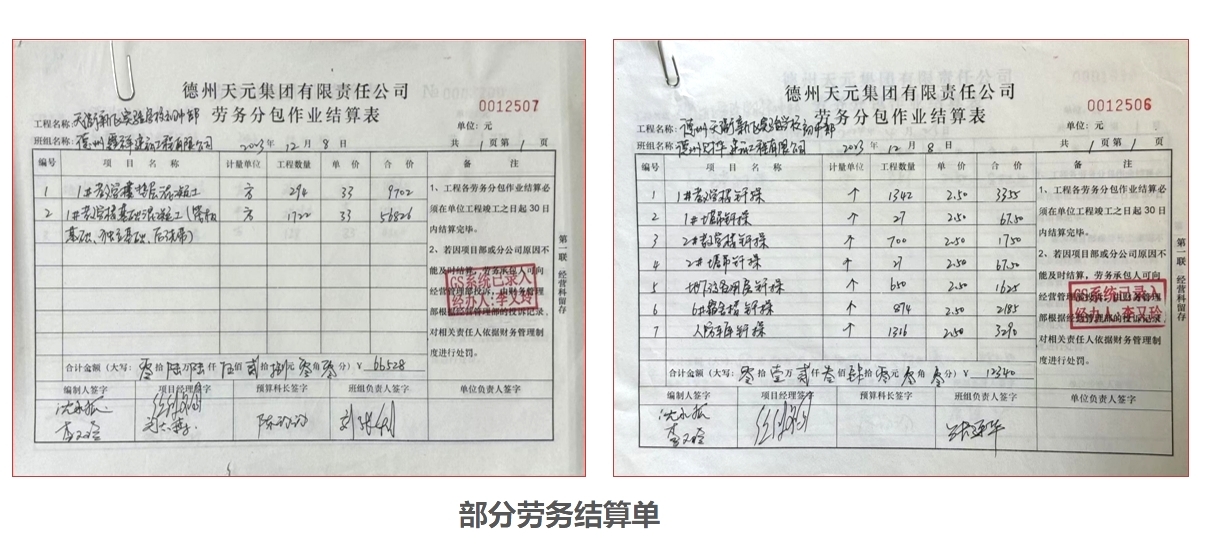 德州天元集团有限责任公司
劳务分包作业结算表
0012507
工程名称：天衢新区实验学校初中部
单位：元
班组名称：德州 建筑工程有限公司
2023 年 12 月 8 日
共 1 页 第 1 页
编号 项目名称 计量单位 工程数量 单价 合价 备注
1 1#教学楼垫层混凝土 方 294 33 9702
2 1#教学楼基础混凝土(筏板 方 1722 33 56826
基础、独立基础、后浇带)
1、工程各劳务分包作业结算必
须在单位工程竣工之日起30日
内结算完毕。
2、若因项目部或分公司原因不
能及时结算，劳务承包人可向
经营管理部投诉，由财务管理
部根据经营管理部的投诉记录，
对相关责任人依据财务管理制
度进行处罚。
GS系统已录入
经办人:李又玲
第一联 经营科留存
合计金额（大写：零拾陆万陆仟伍佰贰拾捌元零角零分）￥ 66528
编制人签字 项目经理签字 预算科长签字 班组负责人签字 单位负责人签字
李又玲
德州天元集团有限责任公司
劳务分包作业结算表
0012506
工程名称：德州天衢新区实验学校初中部
单位：元
班组名称：德州 建筑工程有限公司
2023 年 12 月 8 日
共 1 页 第 1 页
编号 项目名称 计量单位 工程数量 单价 合价 备注
1 1#教学楼钎探 个 1342 2.50 3355
2 1#塔吊钎探 个 27 2.50 67.50
3 2#教学楼钎探 个 700 2.50 1750
4 2#塔吊钎探 个 27 2.50 67.50
5 地下设备用房钎探 个 650 2.50 1625
6 6#宿舍楼钎探 个 874 2.50 2185
7 人防车库钎探 个 1316 2.50 3290
1、工程各劳务分包作业结算必
须在单位工程竣工之日起30日
内结算完毕。
2、若因项目部或分公司原因不
能及时结算，劳务承包人可向
经营管理部投诉，由财务管理
部根据经营管理部的投诉记录，
对相关责任人依据财务管理制
度进行处罚。
GS系统已录入
经办人:李又玲
第一联 经营科留存
合计金额（大写：零拾壹万贰仟叁佰肆拾零元零角零分）￥ 12340
编制人签字 项目经理签字 预算科长签字 班组负责人签字 单位负责人签字
李又玲
部分劳务结算单